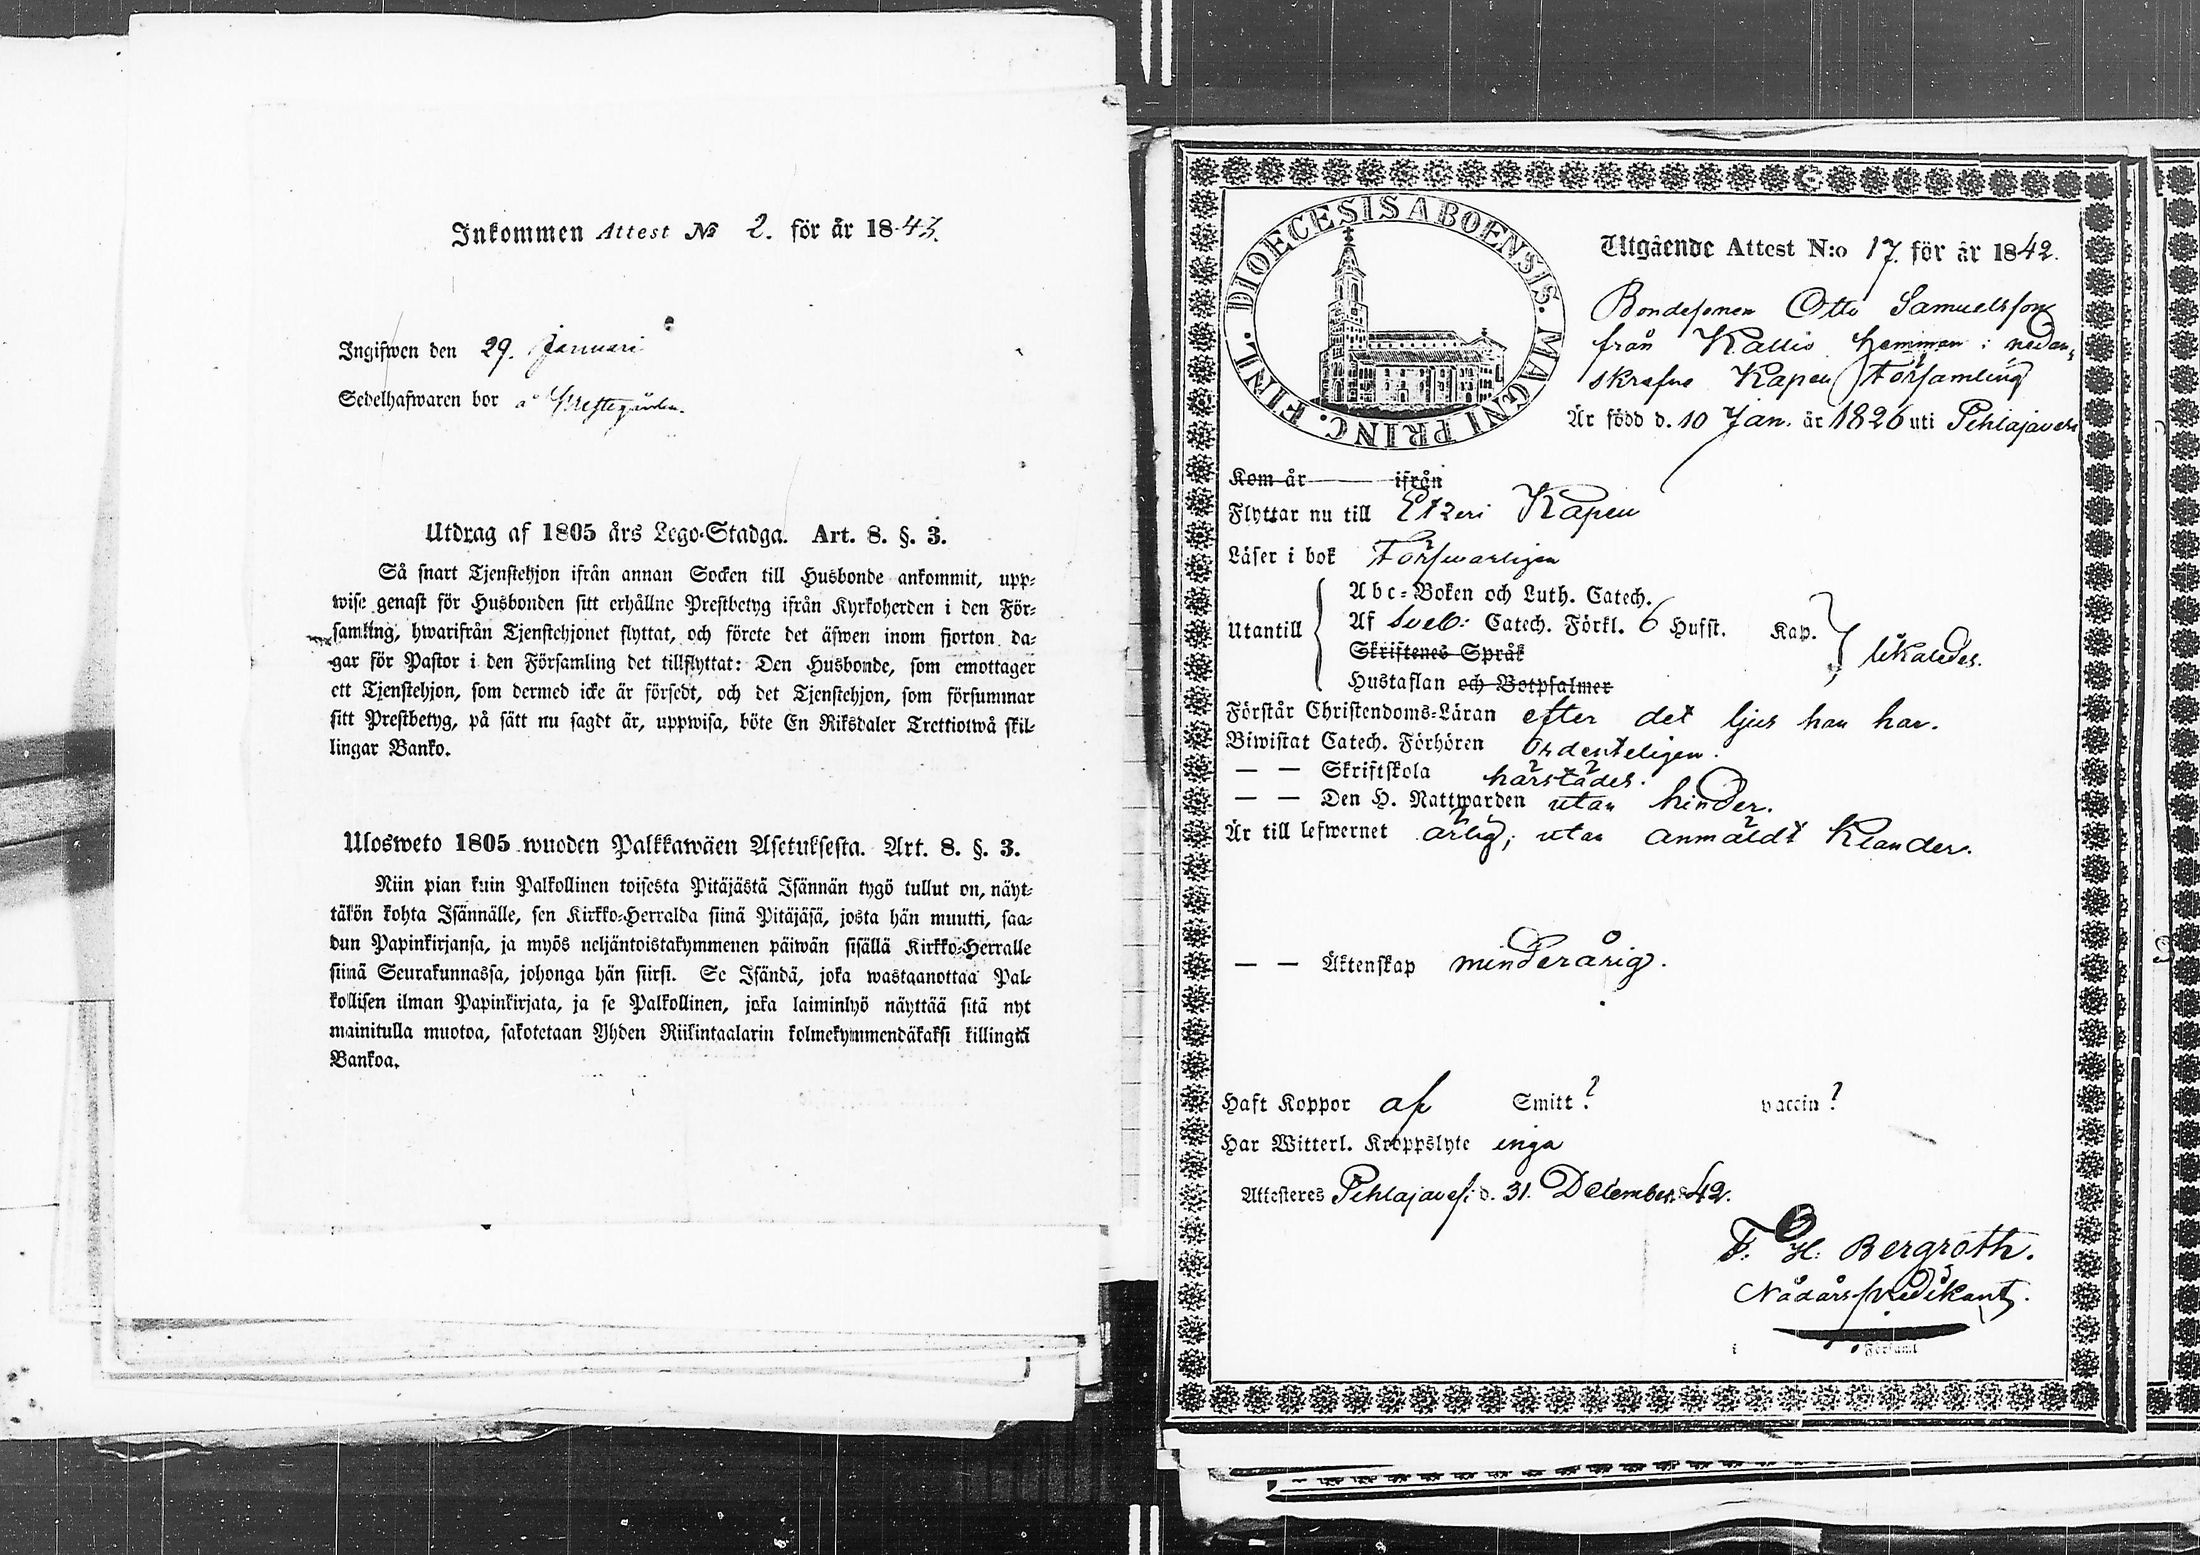 Inkommen Attest № 2. för år 1843.
Ingifwen den 29. Januari
Sedelhafwaren bor å Prestegården.
Utdrag af 1805 års Lego-Stadga. Art. 8. §. 3.
Så snart Tjenstehjon ifrån annan Socken till Husbonde ankommit, upp-
wise genast för Husbonden sitt erhållne Prestbetyg ifrån Kyrkoherden i den För-
samling, hwarifrån Tjenstehjonet flyttat, och förete det äfwen inom fjorton da-
gar för Pastor i den Församling det tillflyttat: Den Husbonde, som emottager
ett Tjenstehjon, som dermed icke är försedt, och det Tjenstehjon, som försummar
sitt Prestbetyg, på sätt nu sagdt är, uppwisa, böte En Riksdaler Trettiotwå skil-
lingar Banko.
Ulosweto 1805 wuoden Palkkawäen Asetuksesta. Art. 8. §. 3.
Niin pian kuin Palkollinen toisesta Pitäjästä Isännän tygö tullut on, näyt-
täkön kohta Isännälle, sen Kirkko-Herralda siinä Pitäjäsä, josta hän muutti, saa-
dun Papinkirjansa, ja myös neljäntoistakymmenen päiwän sisällä Kirkko-Herralle
siinä Seurakunnassa, johonga hän siirsi. Se Isändä, joka wastaanottaa Pal-
kollisen ilman Papinkirjata, ja se Palkollinen, joka laiminlyö näyttää sitä nyt
mainitulla muotoa, sakotetaan Yhden Riikintaalarin kolmekymmendäkaksi killingiä
Bankoa.
DIOECESIS ABOENSIS. MAGNI PRINC. FINL.
Utgående Attest N:o 17. för år 1842.
Bondesonen Otto Samuelsson
från Kallio hemman i nedan-
skrefne Kapell Församling
Är född d. 10 Jan. år 1826 uti Pihlajavesi
Kom år ifrån
Flyttar nu till Etzeri Kapell
Läser i bok Försvarligen
Abc-Boken och Luth. Catech.
Utantill Af Sveb: Catech. Förkl. 6 Hufst. Kap. likaledes.
Skriftenes Språk
Hustaflan och Botpsalmer
Förstår Christendoms-Läran efter det ljus han har.
Biwistat Catech. Förhören Ordenteligen.
— — Skriftskola härstädes.
— — Den H. Nattwarden utan hinder.
Är till lefwernet ärlig, utan anmäldt klander.
— — Äktenskap minderårig.
Haft Koppor af Smitt? vaccin?
Har Witterl. Kroppslyte inga
Attesteres Pihlajavesi d. 31. December 1842.
F. H. Bergroth.
Nådårspredikant.
i Församl